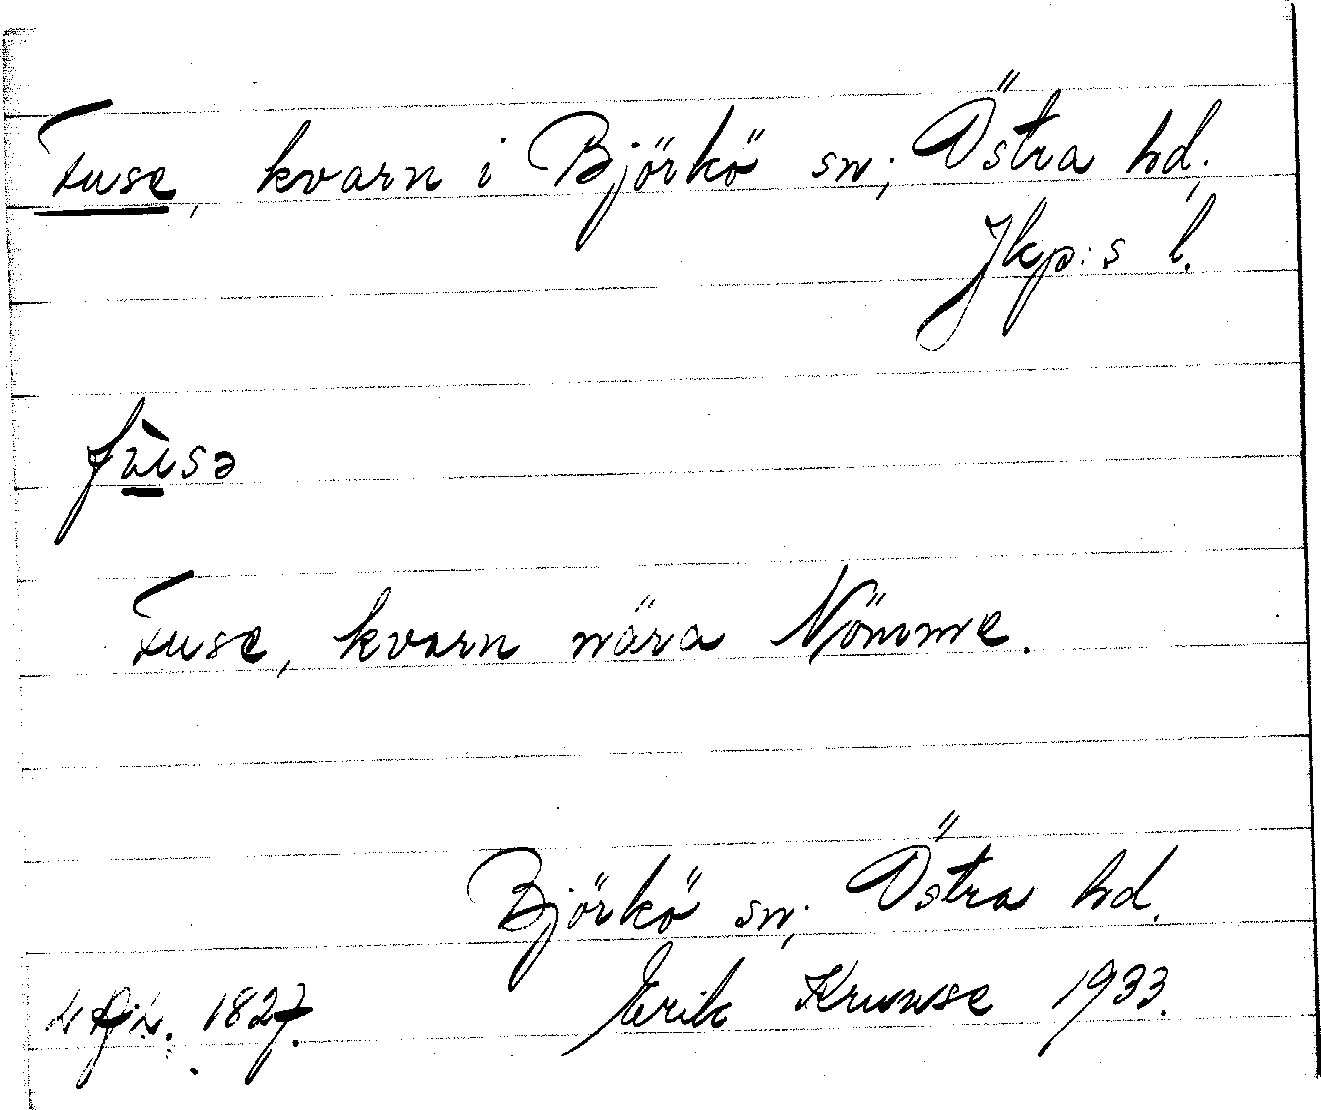 Fuse, kvarn i Björkö sn; Östra hd,
Jkp:s l.
fùsə
Fuse, kvarn nära Nömme.
Björkö sn; Östra hd.
1827. Erik Kruuse 1933.